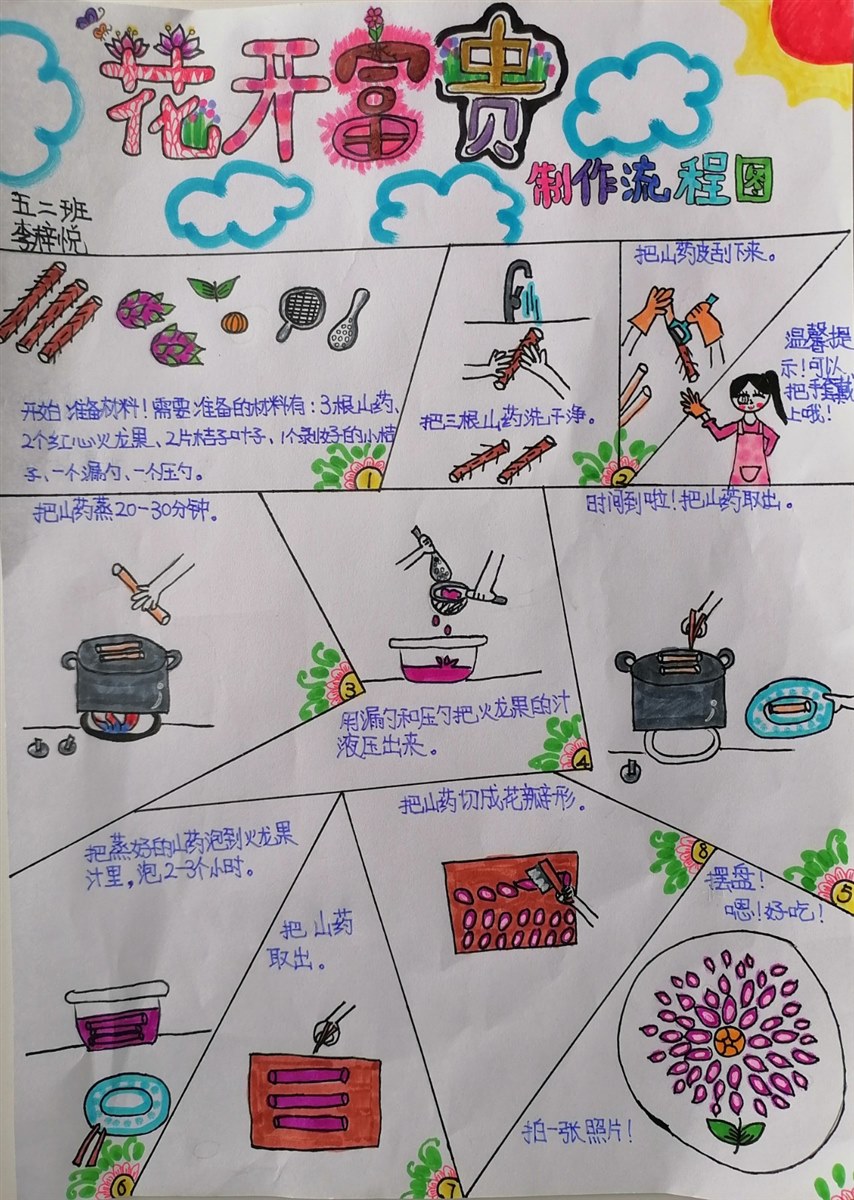 花开富贵
制作流程图
五二班
李梓悦
开始准备材料！需要准备的材料有：3根山药、
2个红心火龙果、2片桔子叶子、1个剥好的小桔
子、一个漏勺、一个压勺。
1
把三根山药洗干净。
2
把山药皮刮下来。
温馨提
示！可以
把手套戴
上哦！
把山药蒸20-30分钟。
3
用漏勺和压勺把火龙果的汁
液压出来。
4
时间到啦！把山药取出。
5
把蒸好的山药泡到火龙果
汁里，泡2-3个小时。
6
把山药
取出。
7
把山药切成花瓣形。
8
摆盘！
嗯！好吃！
拍一张照片！